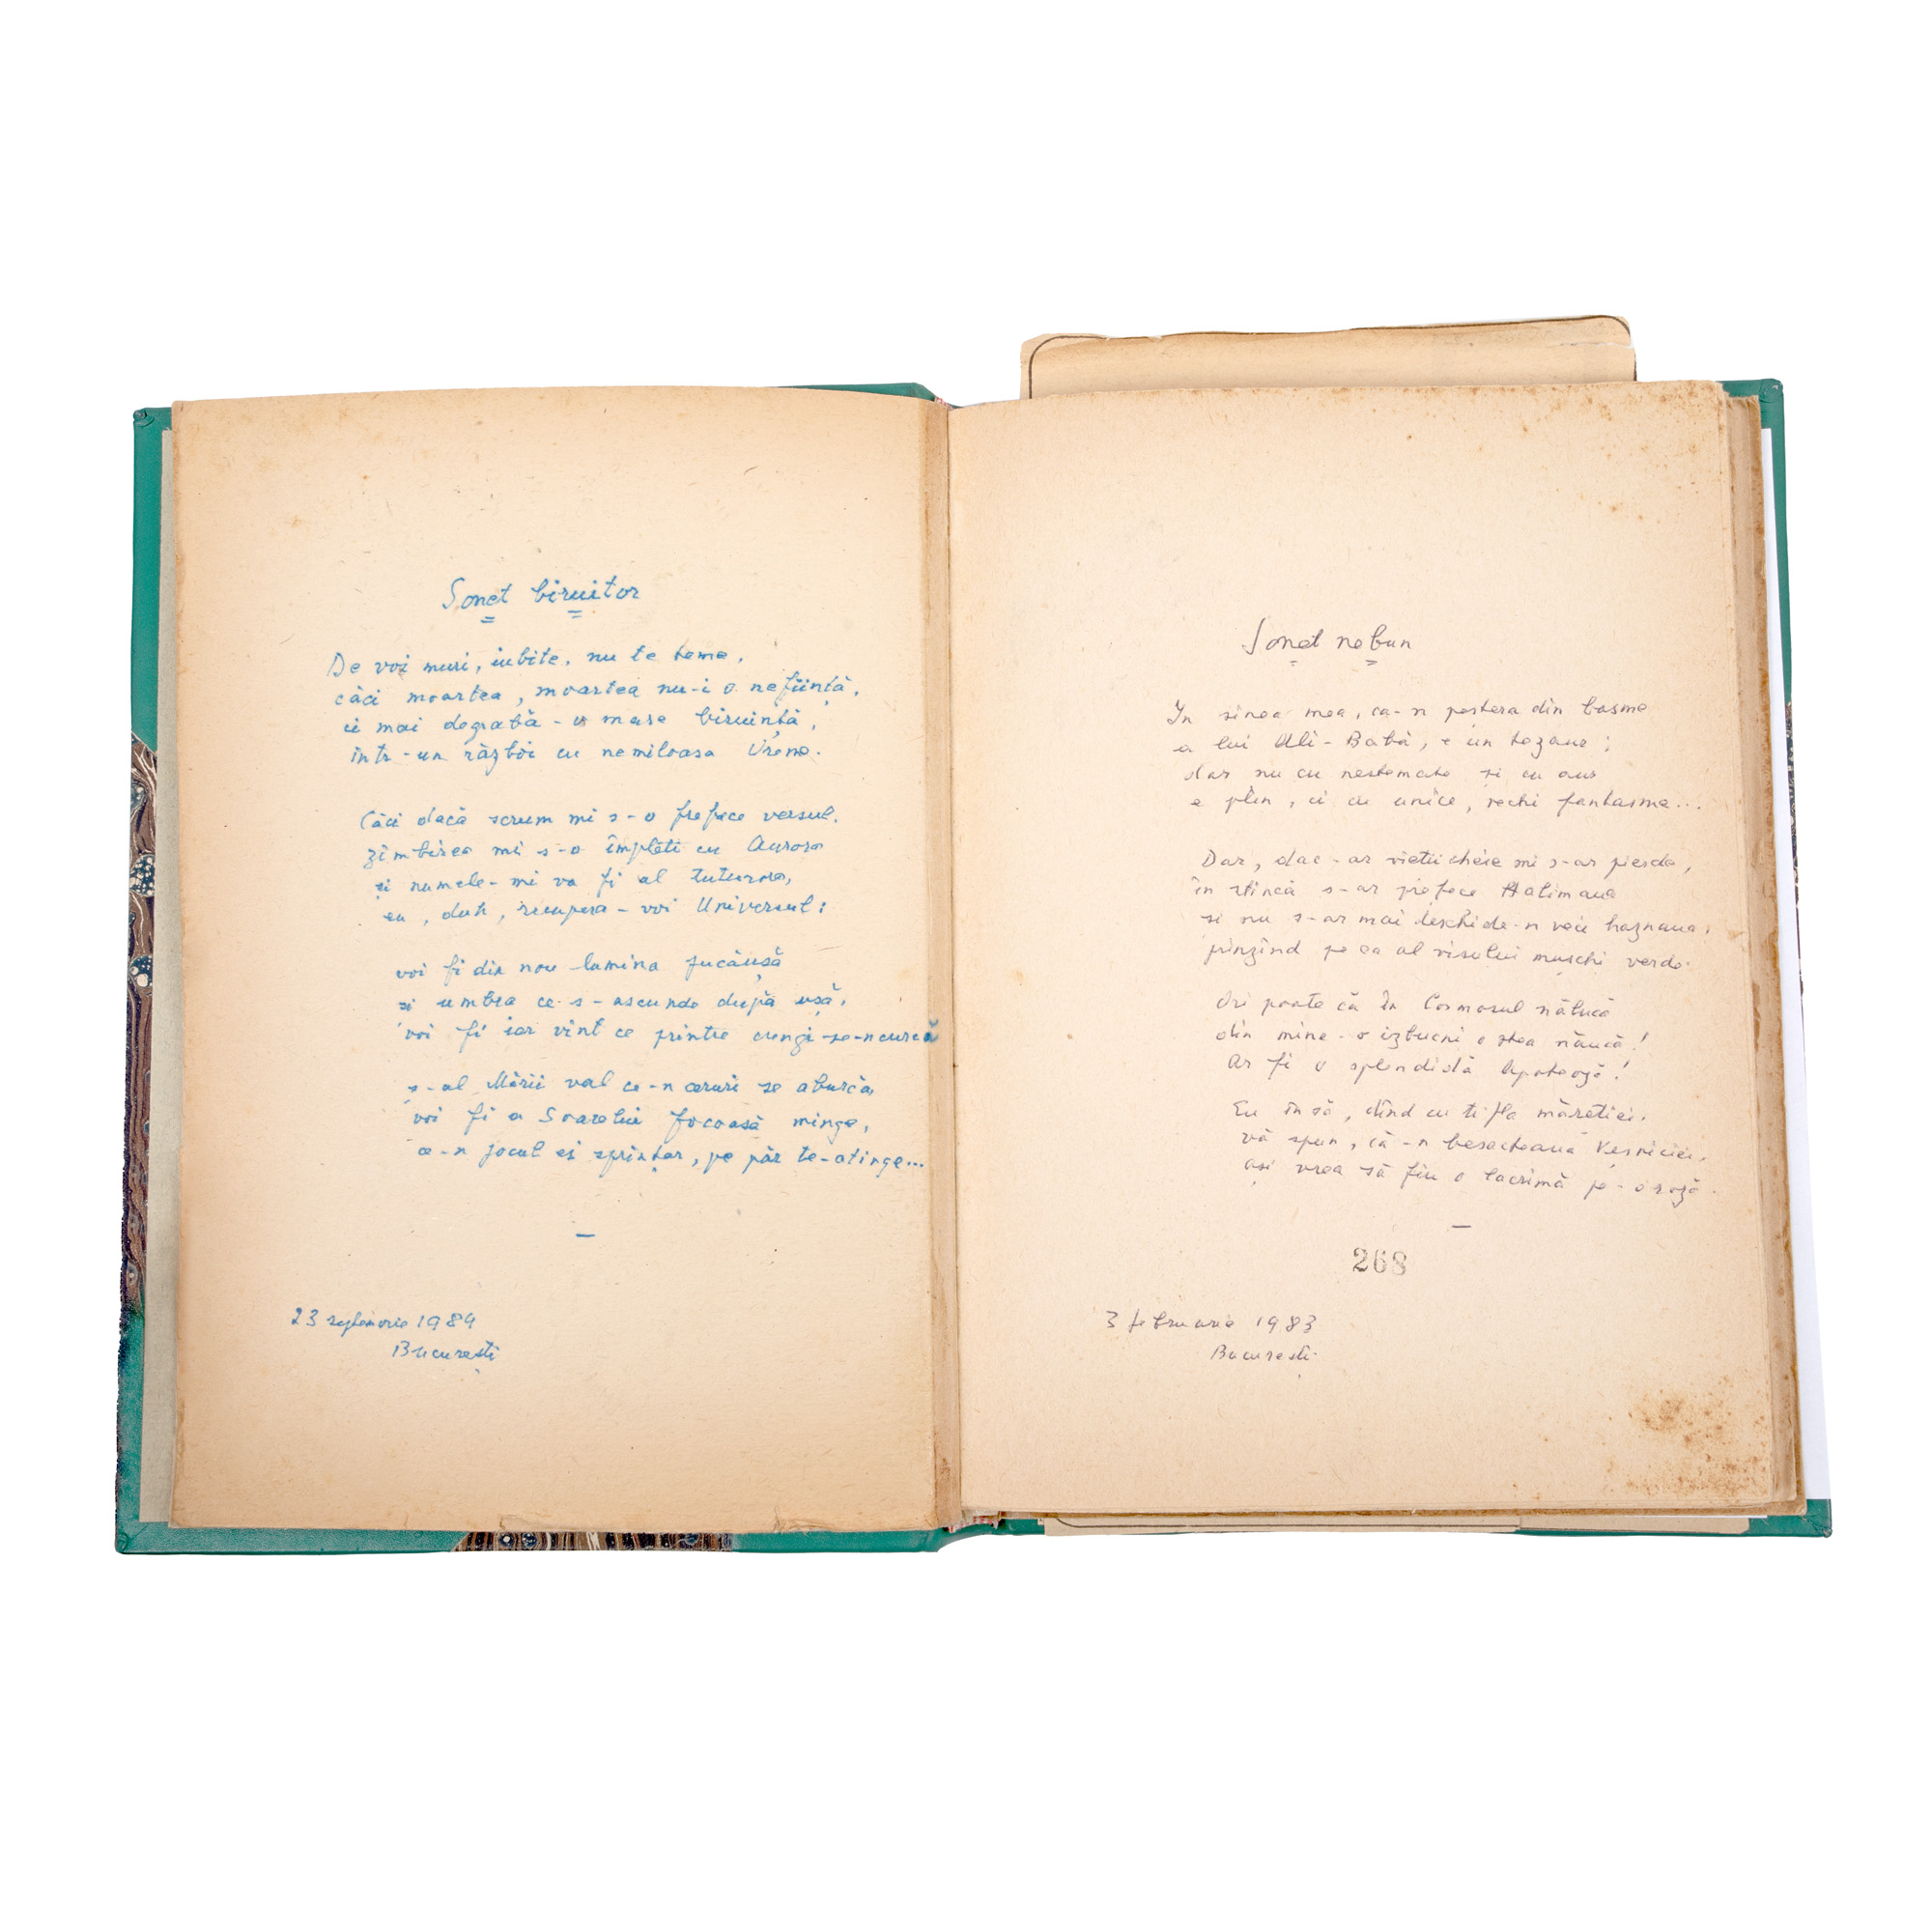 Sonet biruitor
De voi muri, iubite, nu te teme,
căci moartea, moartea nu-i o neființă,
ci mai degrabă-o mare biruință,
într-un război cu nemiloasa Vreme.
Căci dacă scrum mi s-o preface versul,
zîmbirea mi s-o împleti cu Aurora
și numele-mi va fi al tuturora,
eu, duh, recupera-voi Universul:
voi fi din nou lumina jucăușă
și umbra ce-s-ascunde după ușă,
voi fi iar vînt ce printre crengi se-ncurcă
ș-al Mării val ce-n ceruri se aburcă,
voi fi a Soarelui focoasă minge,
ce-n jocul ei sprințar, pe păr te-atinge...
—
23 septembrie 1989
București
Sonet nebun
În sinea mea, ca-n peștera din basme
a lui Ali-Babà, e un tezaur;
dar nu cu nestemate și cu aur
e plin, ci cu unice, vechi fantasme...
Dar, dac-ar vieții cheie mi s-ar pierde,
în stîncă s-ar preface Halimaua
și nu s-ar mai deschide-n veci haznaua,
prinzînd pe ea al visului mușchi verde.
Ori poate că în Cosmosul nătucă
din mine-o izbucni o stea năucă!
Ar fi o splendidă Apoteoză!
Eu însă, dînd cu tifla măreției,
vă spun, că-n besacteaua Veșniciei,
aș vrea să fiu o lacrimă pe-o roză.
—
268
3 februarie 1983
București